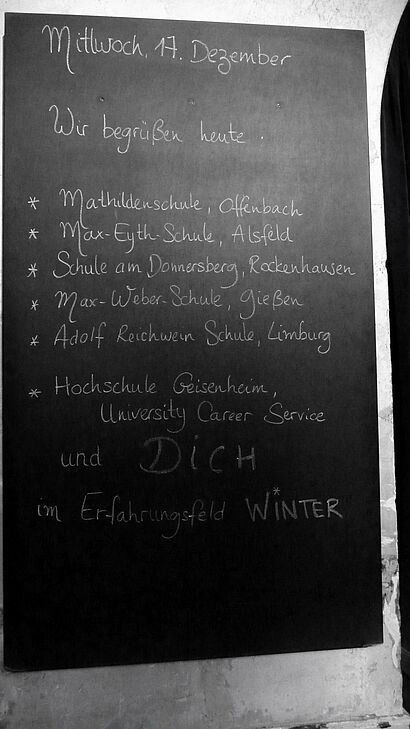 Mittwoch, 17. Dezember
Wir begrüßen heute.
* Mathildenschule, Offenbach
* Max-Eyth-Schule, Alsfeld
* Schule am Donnersberg, Rockenhausen
* Max-Weber-Schule, Gießen
* Adolf Reichwein Schule, Limburg
* Hochschule Geisenheim,
University Career Service
und DiCH
im Erfahrungsfeld WiNTER